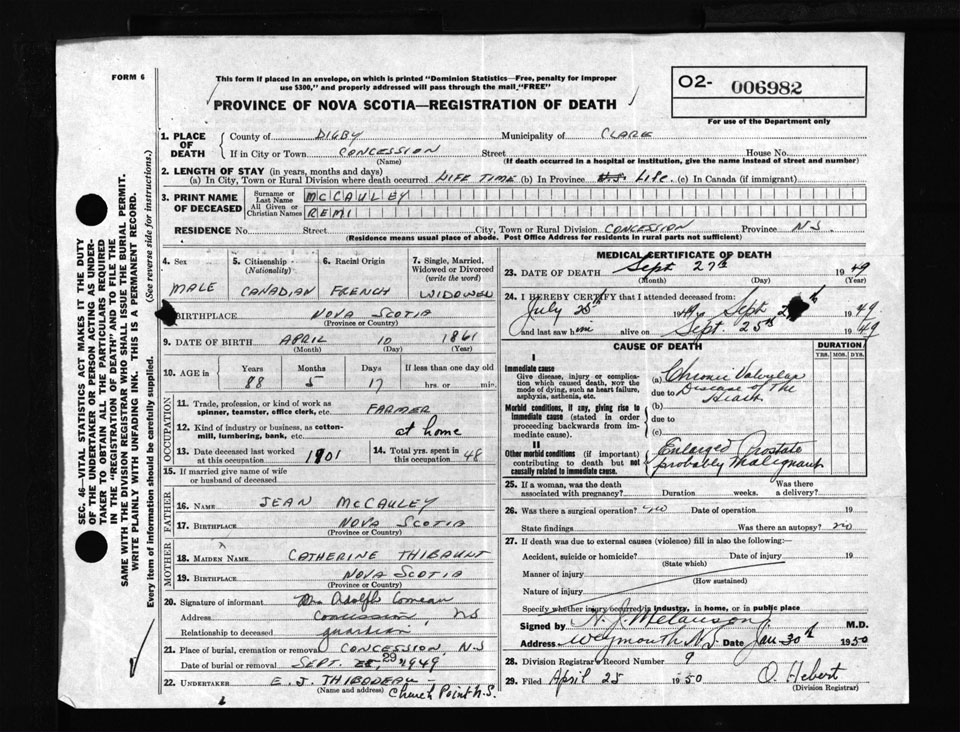 FORM 6
This form if placed in an envelope, on which is printed "Dominion Statistics—Free, penalty for improper
use $300," and properly addressed will pass through the mail "FREE"
PROVINCE OF NOVA SCOTIA—REGISTRATION OF DEATH
O2- 006982
For use of the Department only
1. PLACE OF DEATH County of DIGBY Municipality of CLARE
If in City or Town CONCESSION Street House No.
(Name) (If death occurred in a hospital or institution, give the name instead of street and number)
2. LENGTH OF STAY (in years, months and days)
(a) In City, Town or Rural Division where death occurred LIFE TIME (b) In Province Life (c) In Canada (if immigrant)
3. PRINT NAME OF DECEASED
Surname or Last Name McCAULEY
All Given or Christian Names REMI
RESIDENCE No. Street City, Town or Rural Division CONCESSION Province NS
(Residence means usual place of abode. Post Office Address for residents in rural parts not sufficient)
4. Sex 5. Citizenship (Nationality) 6. Racial Origin 7. Single, Married, Widowed or Divorced (write the word)
MALE CANADIAN FRENCH WIDOWED
BIRTHPLACE NOVA SCOTIA
(Province or Country)
9. DATE OF BIRTH APRIL 10 1861
(Month) (Day) (Year)
10. AGE in Years Months Days If less than one day old
88 5 17 hrs. or min.
OCCUPATION
11. Trade, profession, or kind of work as spinner, teamster, office clerk, etc. FARMER
12. Kind of industry or business, as cotton-mill, lumbering, bank, etc. at home
13. Date deceased last worked at this occupation 1901 14. Total yrs. spent in this occupation 48
15. If married give name of wife or husband of deceased
FATHER
16. NAME JEAN McCAULEY
17. BIRTHPLACE NOVA SCOTIA
(Province or Country)
MOTHER
18. MAIDEN NAME CATHERINE THIBAULT
19. BIRTHPLACE NOVA SCOTIA
(Province or Country)
20. Signature of informant Mrs Adolph Comeau
Address Concession NS
Relationship to deceased guardian
21. Place of burial, cremation or removal CONCESSION, N.S
Date of burial or removal SEPT. 29, 1949
22. UNDERTAKER E. J. THIBODEAU
(Name and address) Church Point N.S.
MEDICAL CERTIFICATE OF DEATH
23. DATE OF DEATH Sept 27th 1949
(Month) (Day) (Year)
24. I HEREBY CERTIFY that I attended deceased from:
July 25th 1949 Sept 1949
and last saw him alive on Sept 25th 1949
CAUSE OF DEATH DURATION
YRS. MOS. DYS.
I
Immediate cause
Give disease, injury or complication which caused death, NOT the mode of dying, such as heart failure, asphyxia, asthenia, etc.
(a) Chronic Valvular
due to Disease of The
Morbid conditions, if any, giving rise to immediate cause (stated in order proceeding backwards from immediate cause).
(b) Heart
due to
(c)
II
Other morbid conditions (if important) contributing to death but not causally related to immediate cause.
Enlarged Prostate
probably Malignant
25. If a woman, was the death associated with pregnancy? Duration weeks. Was there a delivery?
26. Was there a surgical operation? Date of operation 19
State findings Was there an autopsy? no
27. If death was due to external causes (violence) fill in also the following:—
Accident, suicide or homicide? Date of injury 19
(State which)
Manner of injury
(How sustained)
Nature of injury
Specify whether injury occurred in industry, in home, or in public place
Signed by H. J. Melanson M.D.
Address Weymouth N.S. Date Jan 30th 1950
28. Division Registrar's Record Number 9
29. Filed April 25 1950 O. Hebert
(Division Registrar)
SEC. 46—VITAL STATISTICS ACT MAKES IT THE DUTY
OF THE UNDERTAKER OR PERSON ACTING AS UNDER-
TAKER TO OBTAIN ALL THE PARTICULARS REQUIRED
IN THE "REGISTRATION OF DEATH" AND TO FILE THE
SAME WITH THE DIVISION REGISTRAR WHO SHALL ISSUE THE BURIAL PERMIT.
WRITE PLAINLY WITH UNFADING INK. THIS IS A PERMANENT RECORD.
Every item of information should be carefully supplied. (See reverse side for instructions.)